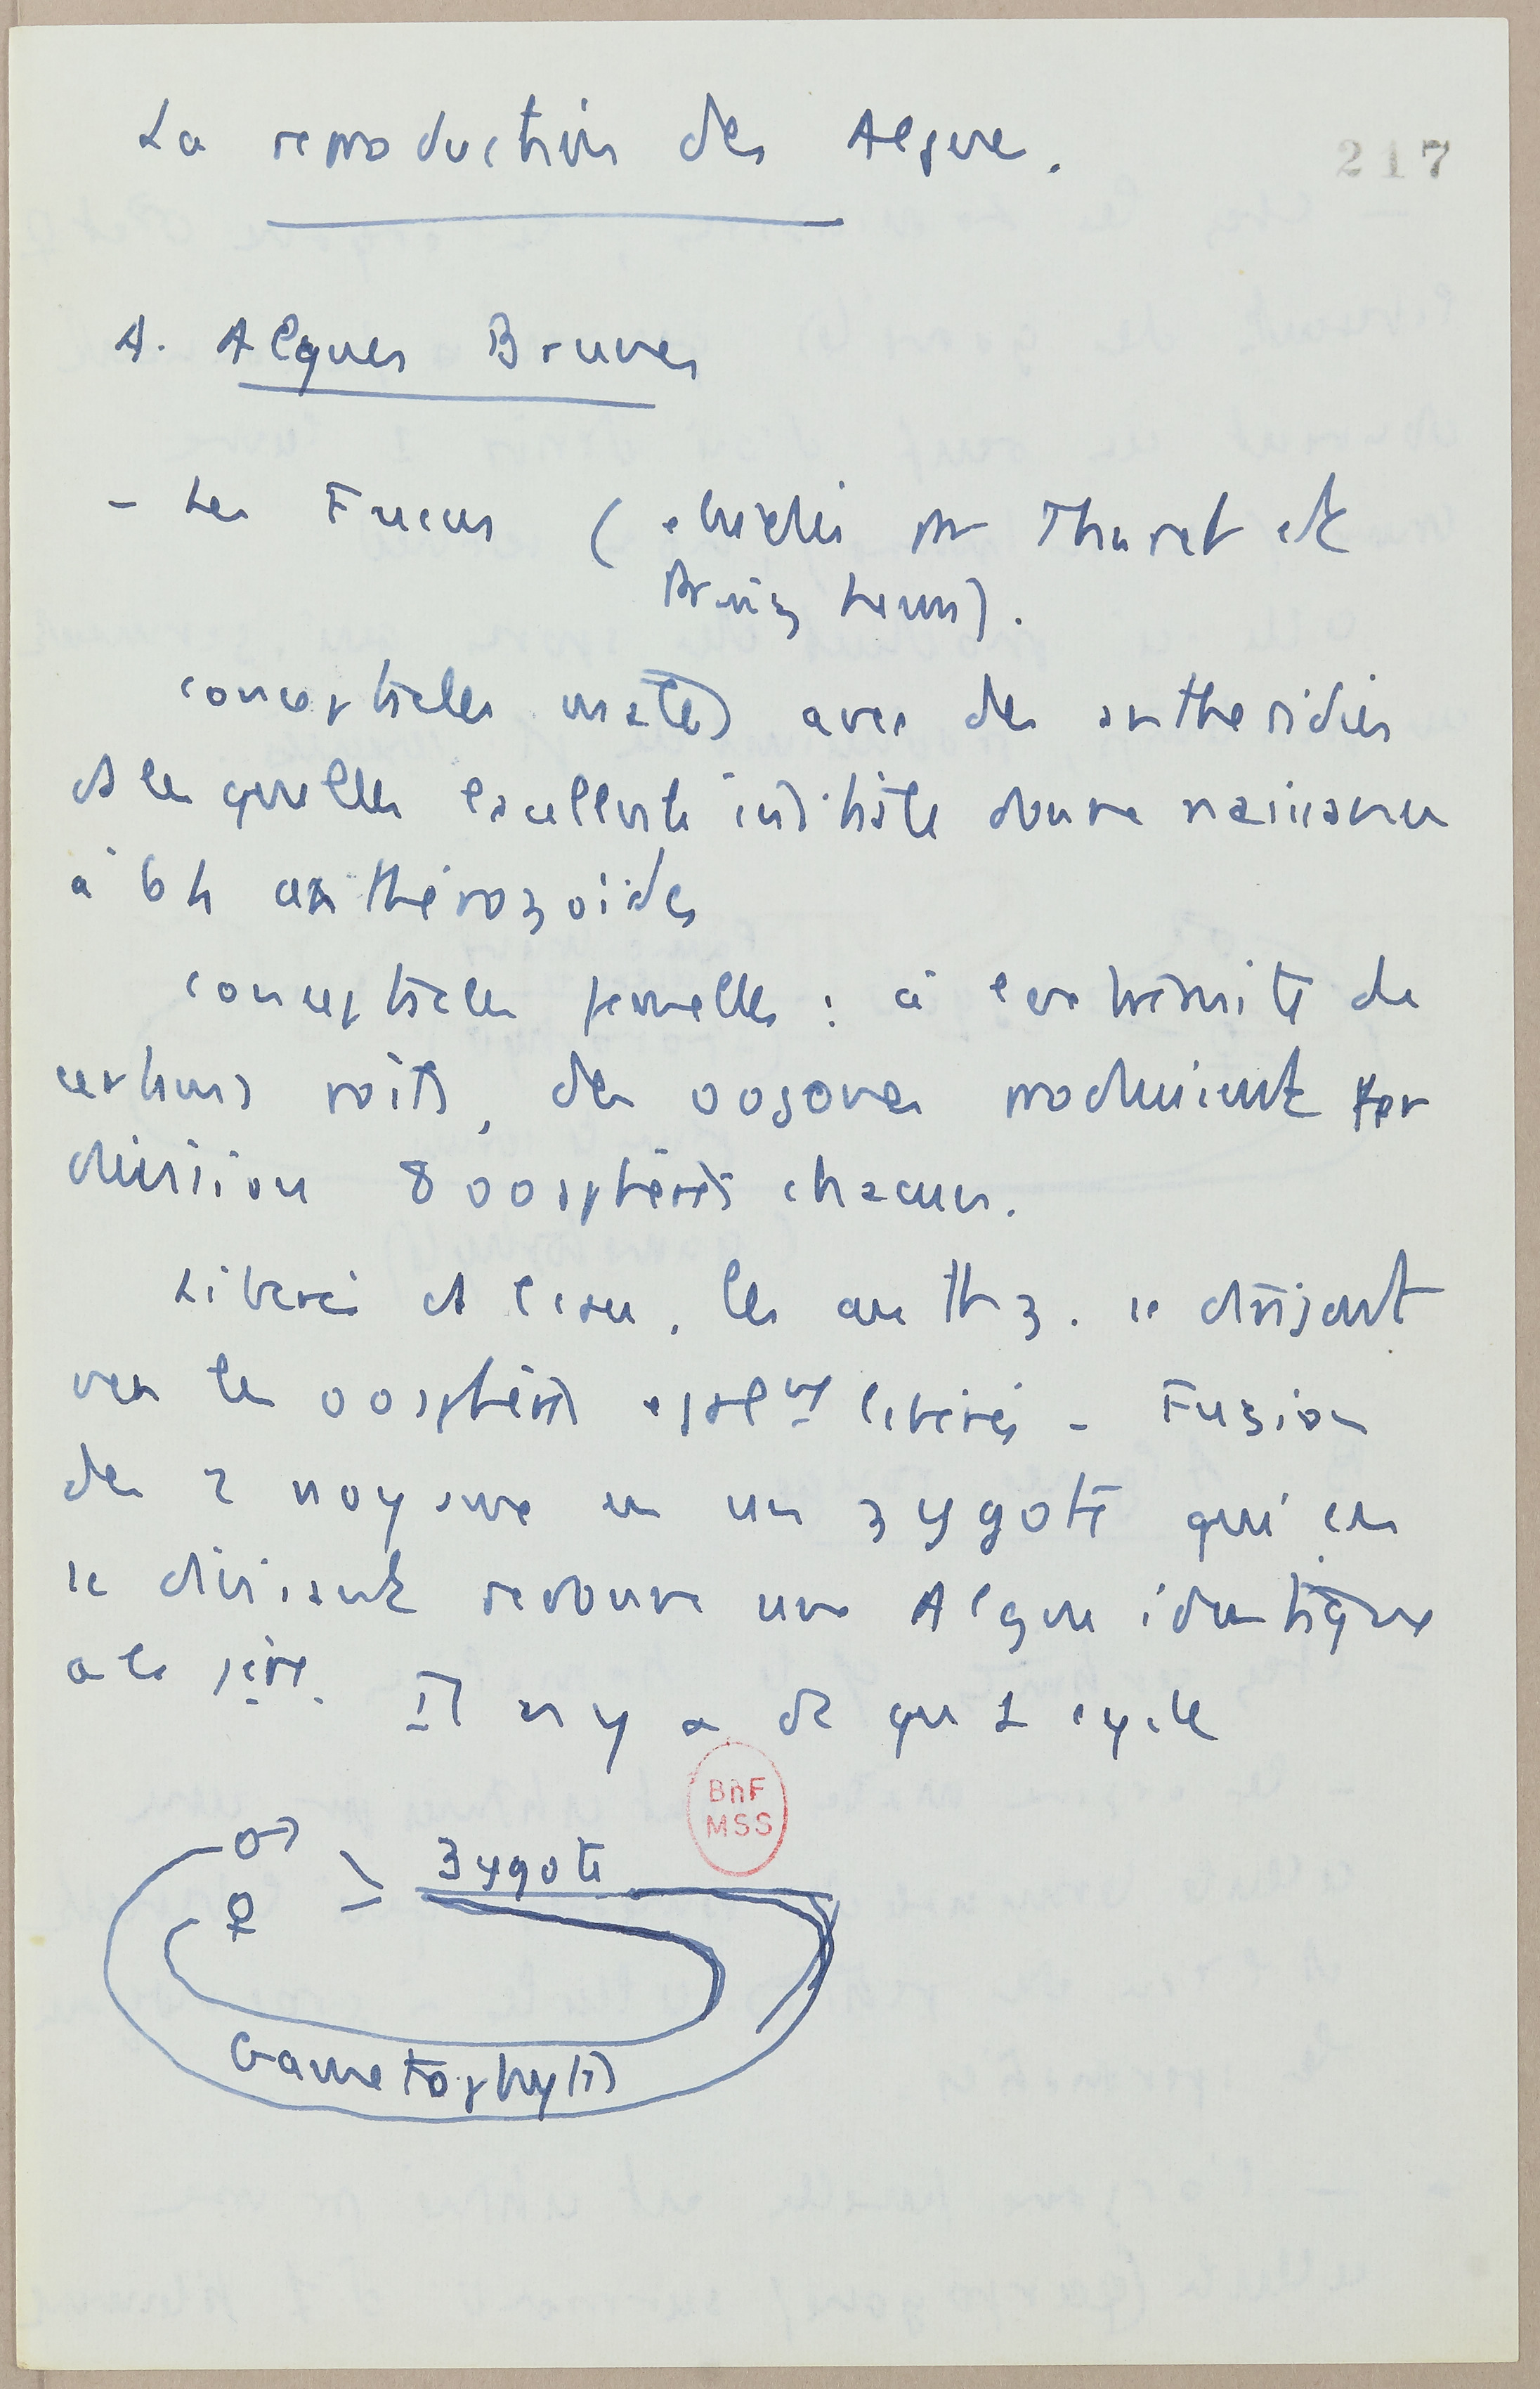 La reproduction des Algues.
217
A. Algues Brunes
- Les Fucus ( étudiés par Thuret et
conceptacles mâles avec des anthéridies
ds lesquelles la cellule initiale donne naissance
à 64 anthérozoïdes
conceptacles femelles : à l'extrémité de
certains poils, des oogones produisent par
division 8 oosphères chacun.
Libérés ds l'eau, les anthz. se dirigent
vers les oosphères égalemt libérées - Fusion
des 2 noyaux en un zygote qui en
se divisant redonne une Algue identique
à la 1ère. Il n'y a dc qu 1 cycle
BnF
MSS
♂
zygote
♀
Gametophytes